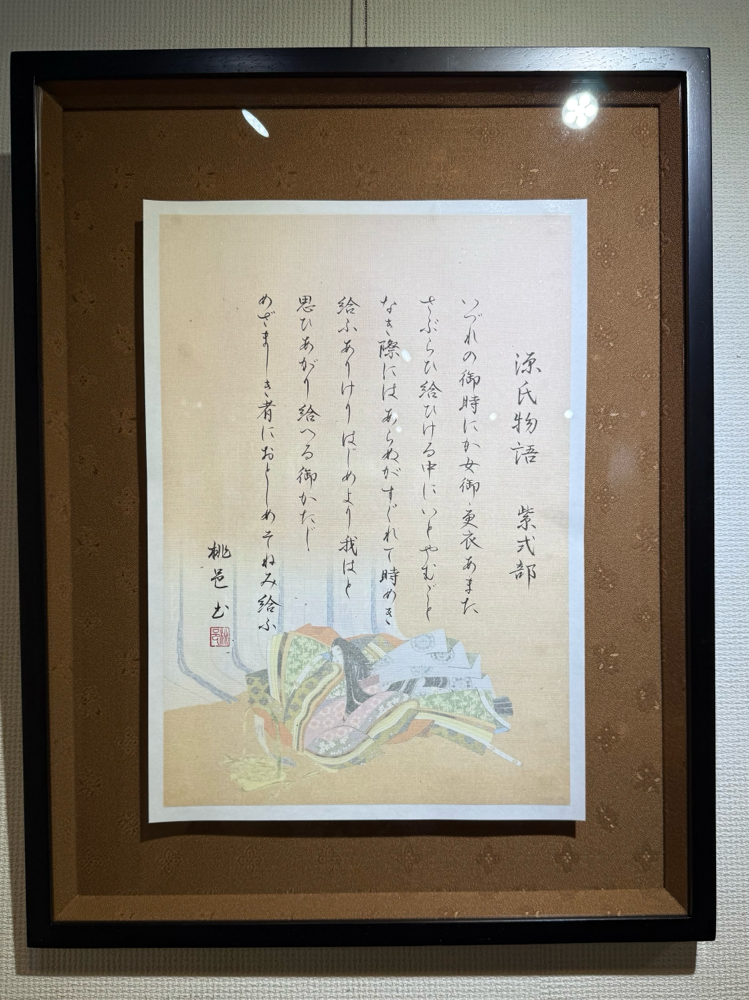 源氏物語　紫式部
いづれの御時にか女御更衣あまた
さぶらひ給ひける中にいとやむごと
なき際にはあらぬがすぐれて時めき
給ふありけりはじめより我はと
思ひあがり給へる御かたじ
めざましき者におとしめそねみ給ふ
桃邑書